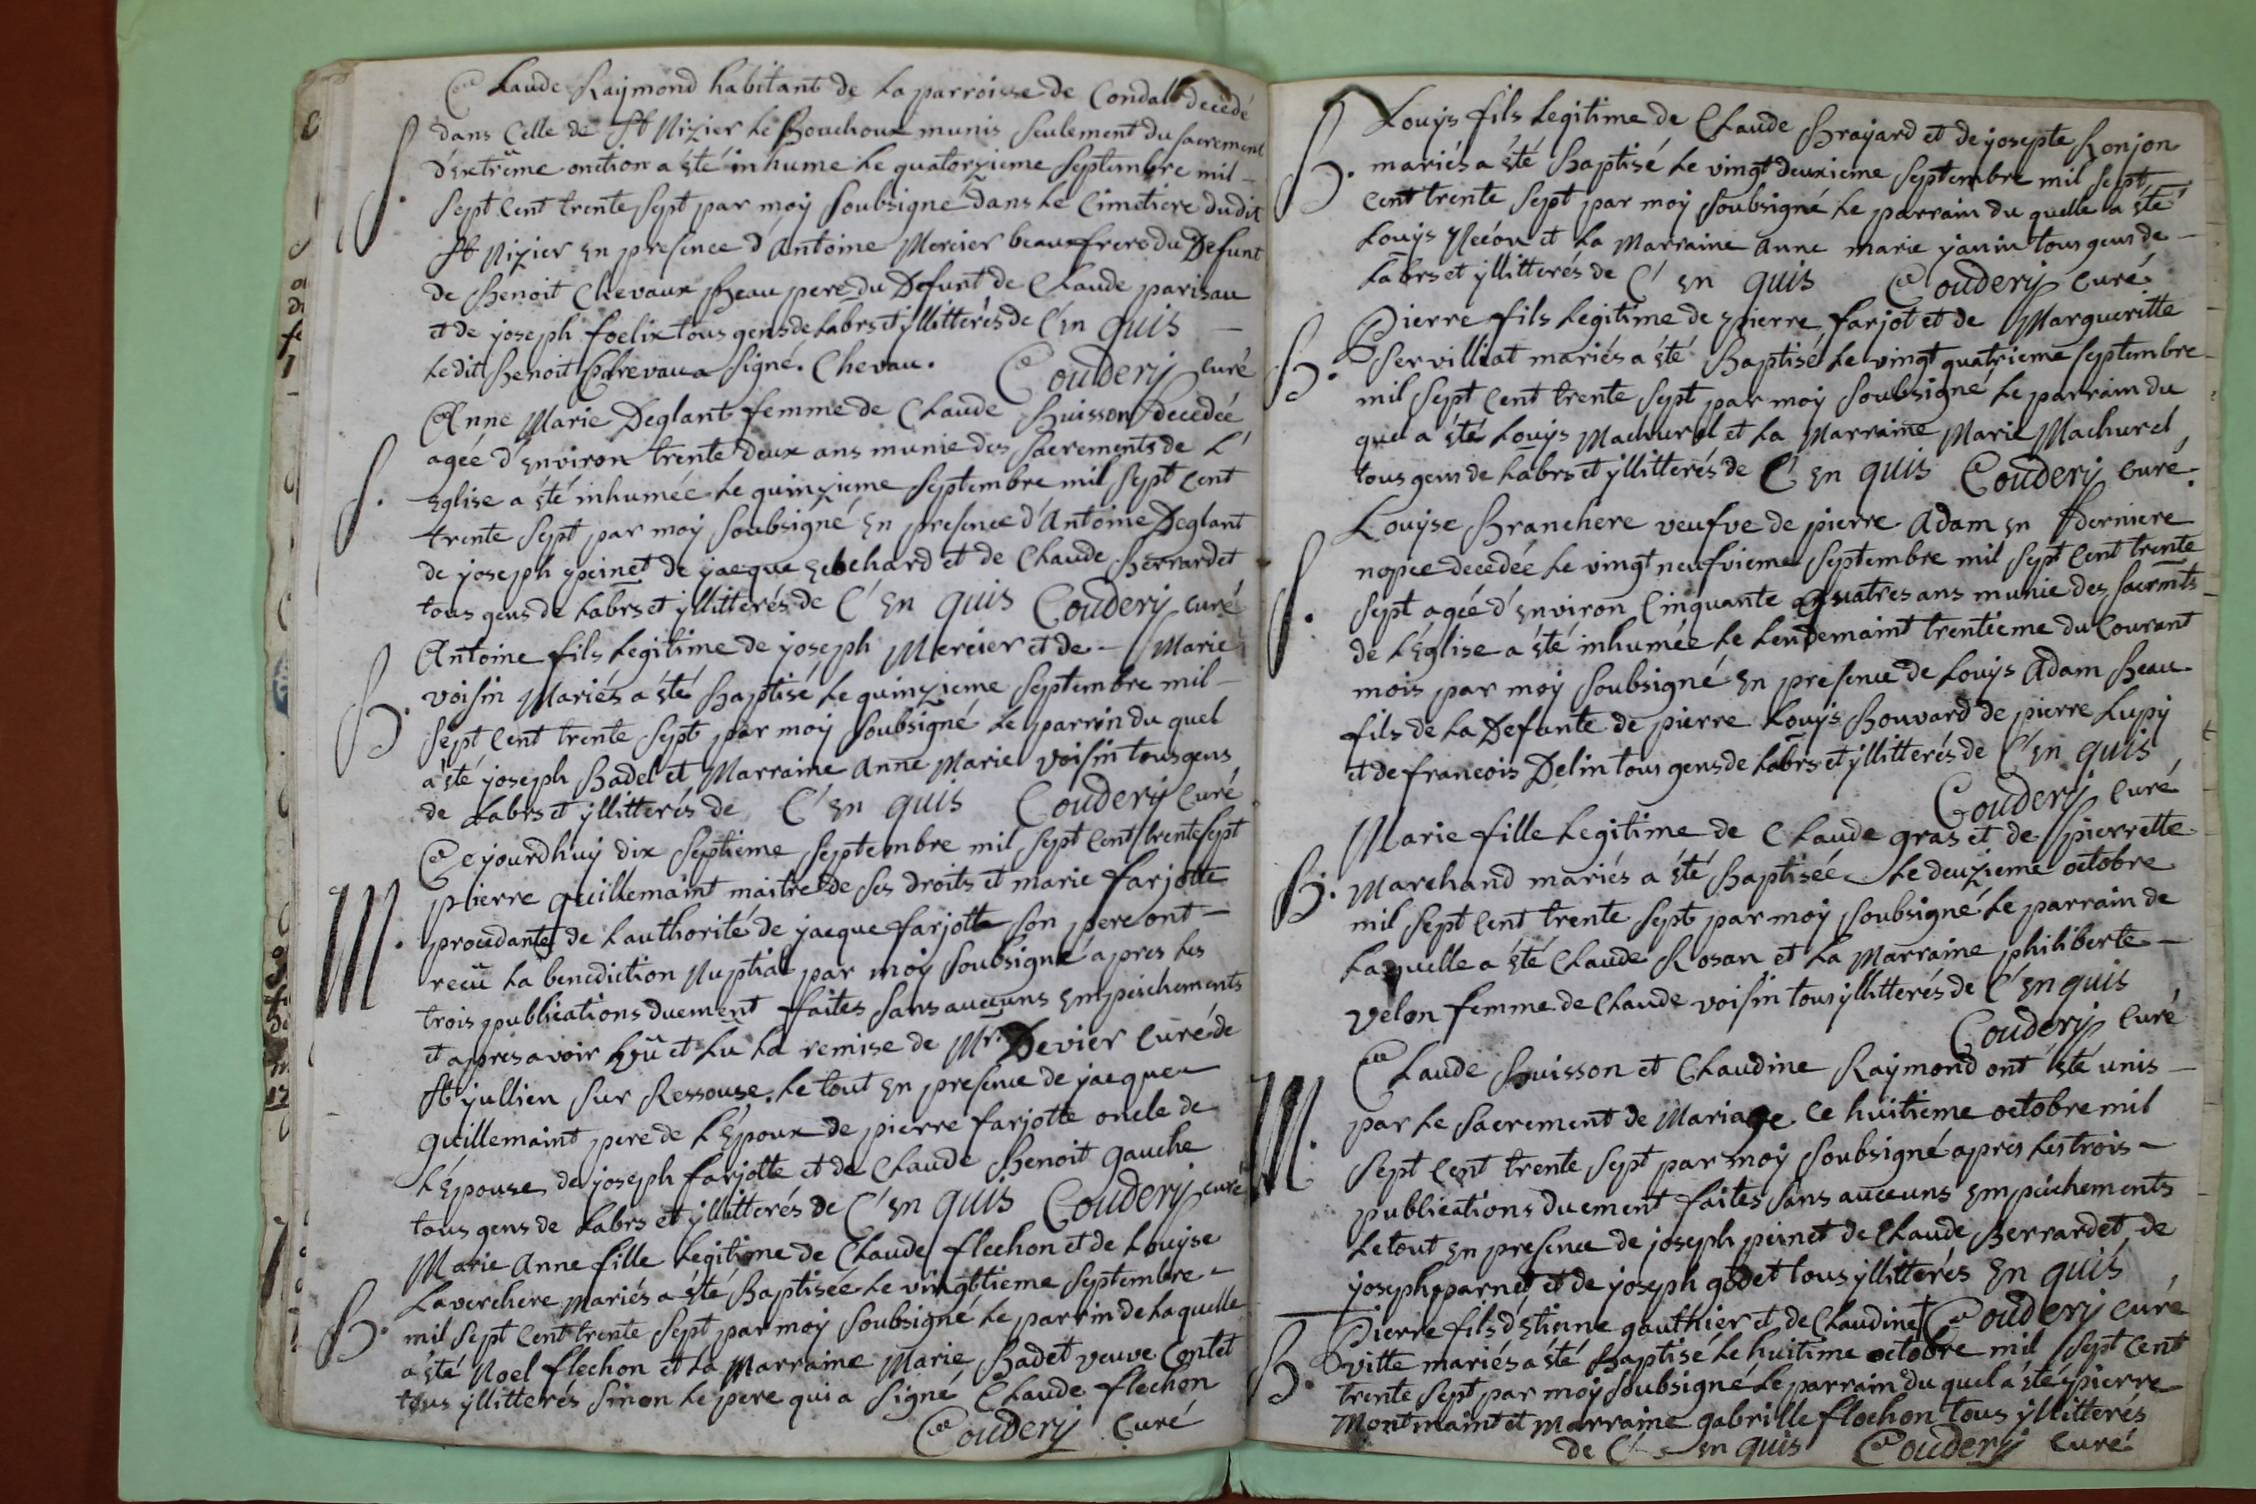 Claude Raymond habitant de La parroisse de Condal decedé
S. dans Celle de St Nizier Le Bouchoux munis seulement du sacrement
d'extrême onction a été inhume Le quatorzieme septembre mil -
sept Cent trente sept par moÿ soubsigné dans Le Cimetiere dudit
St Nizier en presence d'antoine Mercier beau frere du Defunt
de Benoit Chevaux Beau pere du Defunt de Claude parisau
et de joseph foelix tous gens de Labrs et ÿllitterés de C'en quis -
Ledit Benoit Chevaux signé. Chevau. Couderÿ curé
Anne Marie Deglant femme de Claude Buisson Decedée
S. agée d'environ trente deux ans munie des sacrements de L'
Eglise a été inhumée Le quinzieme septembre mil sept Cent
trente sept par moÿ soubsigné en presence d'Antoine Deglant
de joseph peinet de jacque Bechard et de Claude Berrardet
tous gens de Labrs et ÿllitterés de C' en quis Couderÿ curé
B. Antoine fils Legitime de joseph Mercier et de - Marie
voisin Mariés a été Baptisé Le quinzieme septembre mil -
sept Cent trente sept par moÿ soubsigné Le parrin du quel
a été joseph Badel et Marraine Anne Marie voisin tous gens
de Labrs et ÿllitterés de C' en quis Couderÿ curé
Ce jourdhuÿ dix septieme septembre mil sept Cent trente sept
M. pierre guillemaint maitre de ses droits et marie farjotte
procedante de L'authorité de jacque farjotte son pere ont -
recû La benediction Nuptial par moÿ soubsigné apres Les
trois publications duement faites sans aucuns empêchements
et apres avoir vû et Lû La remise de Mr. Devier curé de
St jullien sur Ressouse. Le tout en presence de jacque -
guillemaint pere de L'Epoux de pierre farjotte oncle de
L'Epouse de joseph farjotte et de Claude Benoit gauche
tous gens de Labrs et ÿllitterés de C' en quis Couderÿ curé
Marie Anne fille Legitime de Claude flechon et de Louÿse
B. Laverchere Mariés a été Baptisée Le vingtieme septembre -
mil sept Cent trente sept par moÿ soubsigné Le parrin de Laquelle
a été Noel flechon et La Marraine Marie Badet veuve Contet
tous ÿllitterés sinon Le pere qui a signé Claude flechon
Couderÿ Curé
Louÿs fils Legitime de Claude Braÿard et de josepte Ronjon
B. mariés a été Baptisé Le vingt deuxieme septembre mil sept
cent trente sept par moÿ soubsigné Le parrain du quelle a été
Louÿs et La Marraine Anne marie janin tous gens de -
Labrs et ÿllitterés de C' en quis Couderÿ curé
B. Pierre fils Legitime de pierre farjot et de Margueritte
Servilliat mariés a été Baptisé Le vingt quatrieme septembre -
mil sept Cent trente sept par moÿ soubsigné Le parrain du
quel a été Louÿs Machurel et La Marraine Marie Machurel
tous gens de Labrs et ÿllitterés de C' en quis Couderÿ curé.
Louÿse Branchere veufve de pierre Adam en derniere
nopce decedée Le vingt neufvieme septembre mil sept Cent trente
S. sept agée d'environ Cinquante quatres ans munie des sacrmts -
de L'Eglise a été inhumée Le Lendemaint trentieme du Courant
mois par moÿ soubsigné en presence de Louÿs Adam Beau
fils de La Defunte de pierre Louÿs Bouvard de pierre Lupÿ
et de francois Delin tous gens de Labrs et ÿllitterés de C'en quis
Couderÿ curé
Marie fille Legitime de Claude gras et de pierrette -
B. Marchand mariés a été Baptisée Le deuzieme octobre
mil sept Cent trente sept par moÿ soubsigné Le parrain de
Laquelle a été Claude Rosan et La Marraine philiberte -
velon femme de Claude voisin tous ÿllitterés de C'en quis
Couderÿ curé
Claude Buisson et Claudine Raÿmond ont été unis -
M. par Le sacrement de Mariage Ce huitieme octobre mil
sept Cent trente sept par moÿ soubsigné apres Les trois -
publications duement faites sans aucuns empêchements
Le tout en presence de joseph peinet de Claude Berrardet de
joseph parnet et de joseph godet tous ÿllitterés en quis
Pierre fils d'Etienne gauthier et de Claudine Couderÿ curé
B. vitte mariés a été Baptisé Le huitime octobre mil sept Cent
trente sept par moÿ soubsigné Le parrain du quel a été pierre -
Montmaint et Marraine gabrille flochon tous ÿllitterés
de C' - en quis Couderÿ curé